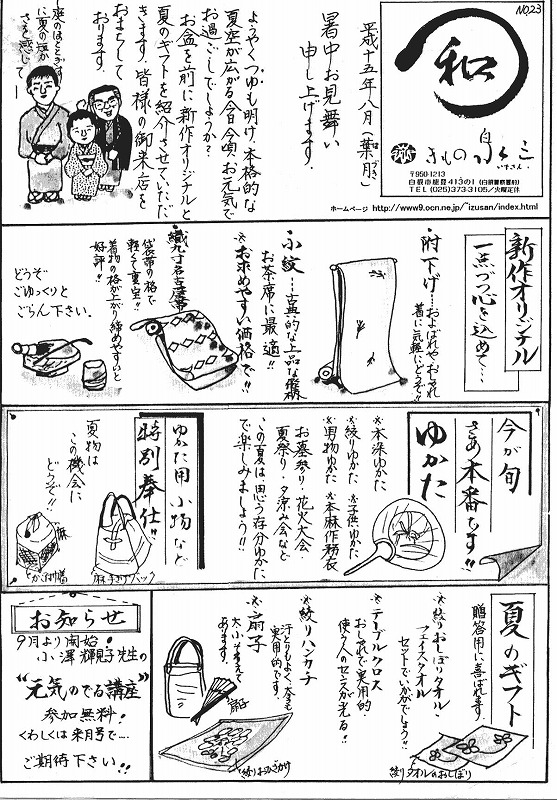 NO,23
和
きもの 泉三
いずさん
〒950-1213
白根市能登413の1(白根警察署前)
TEL (025)373-3105/火曜定休
ホームページ http://www9.ocn.ne.jp/~izusan/index.html
平成十五年八月(葉月)
はづき
暑中お見舞い
申し上げます。
ようやくつゆも明け、本格的な
夏空が広がる今日今頃お元気で
お過ごしでしょうか?
お盆を前に新作オリジナルと
夏のギフトを紹介させていただ
きます。皆様の御来店を
おまちして
おります。
新作オリジナル
一点づつ心を込めて…
附下げ…およばれやおしゃれ
着に気軽にどうぞ!!
小紋…古典的な上品な優柄
お茶席に最適!!
※お求めやすい価格で!!
織九寸名古屋帯
袋帯の格で
軽くて重宝!!
着物の格が上がり締めやすいと
好評!!
どうぞ
ごゆっくりと
ごらん下さい。
今が旬
さあ本番です!!
ゆかた
※本染ゆかた
※絞りゆかた ※子供ゆかた
※男物ゆかた ※本麻作務衣
お墓参り・花火大会
夏祭り・夕涼み会など
この夏は思う存分ゆかた
で楽しみましょう!!
ゆかた用小物など
特別奉仕!!
夏物は
この機会に
どうぞ!!
麻手さげバック
夏のギフト
贈答用に喜ばれます。
※絞りおしぼりタオル・
フェイスタオル
セットでいかがでしょう!!
※テーブルクロス
おしゃれで実用的・
使う人のセンスが光る!!
※絞りハンカチ
汗とりもよく、大きさも
実用的です。
※扇子
大小そろえて
あります。
扇子
絞りタオルのおしぼり
お知らせ
9月より開始!
小澤輝見子先生の
"元気のでる講座"
参加無料!
くわしくは来月号で…
ご期待下さい!!